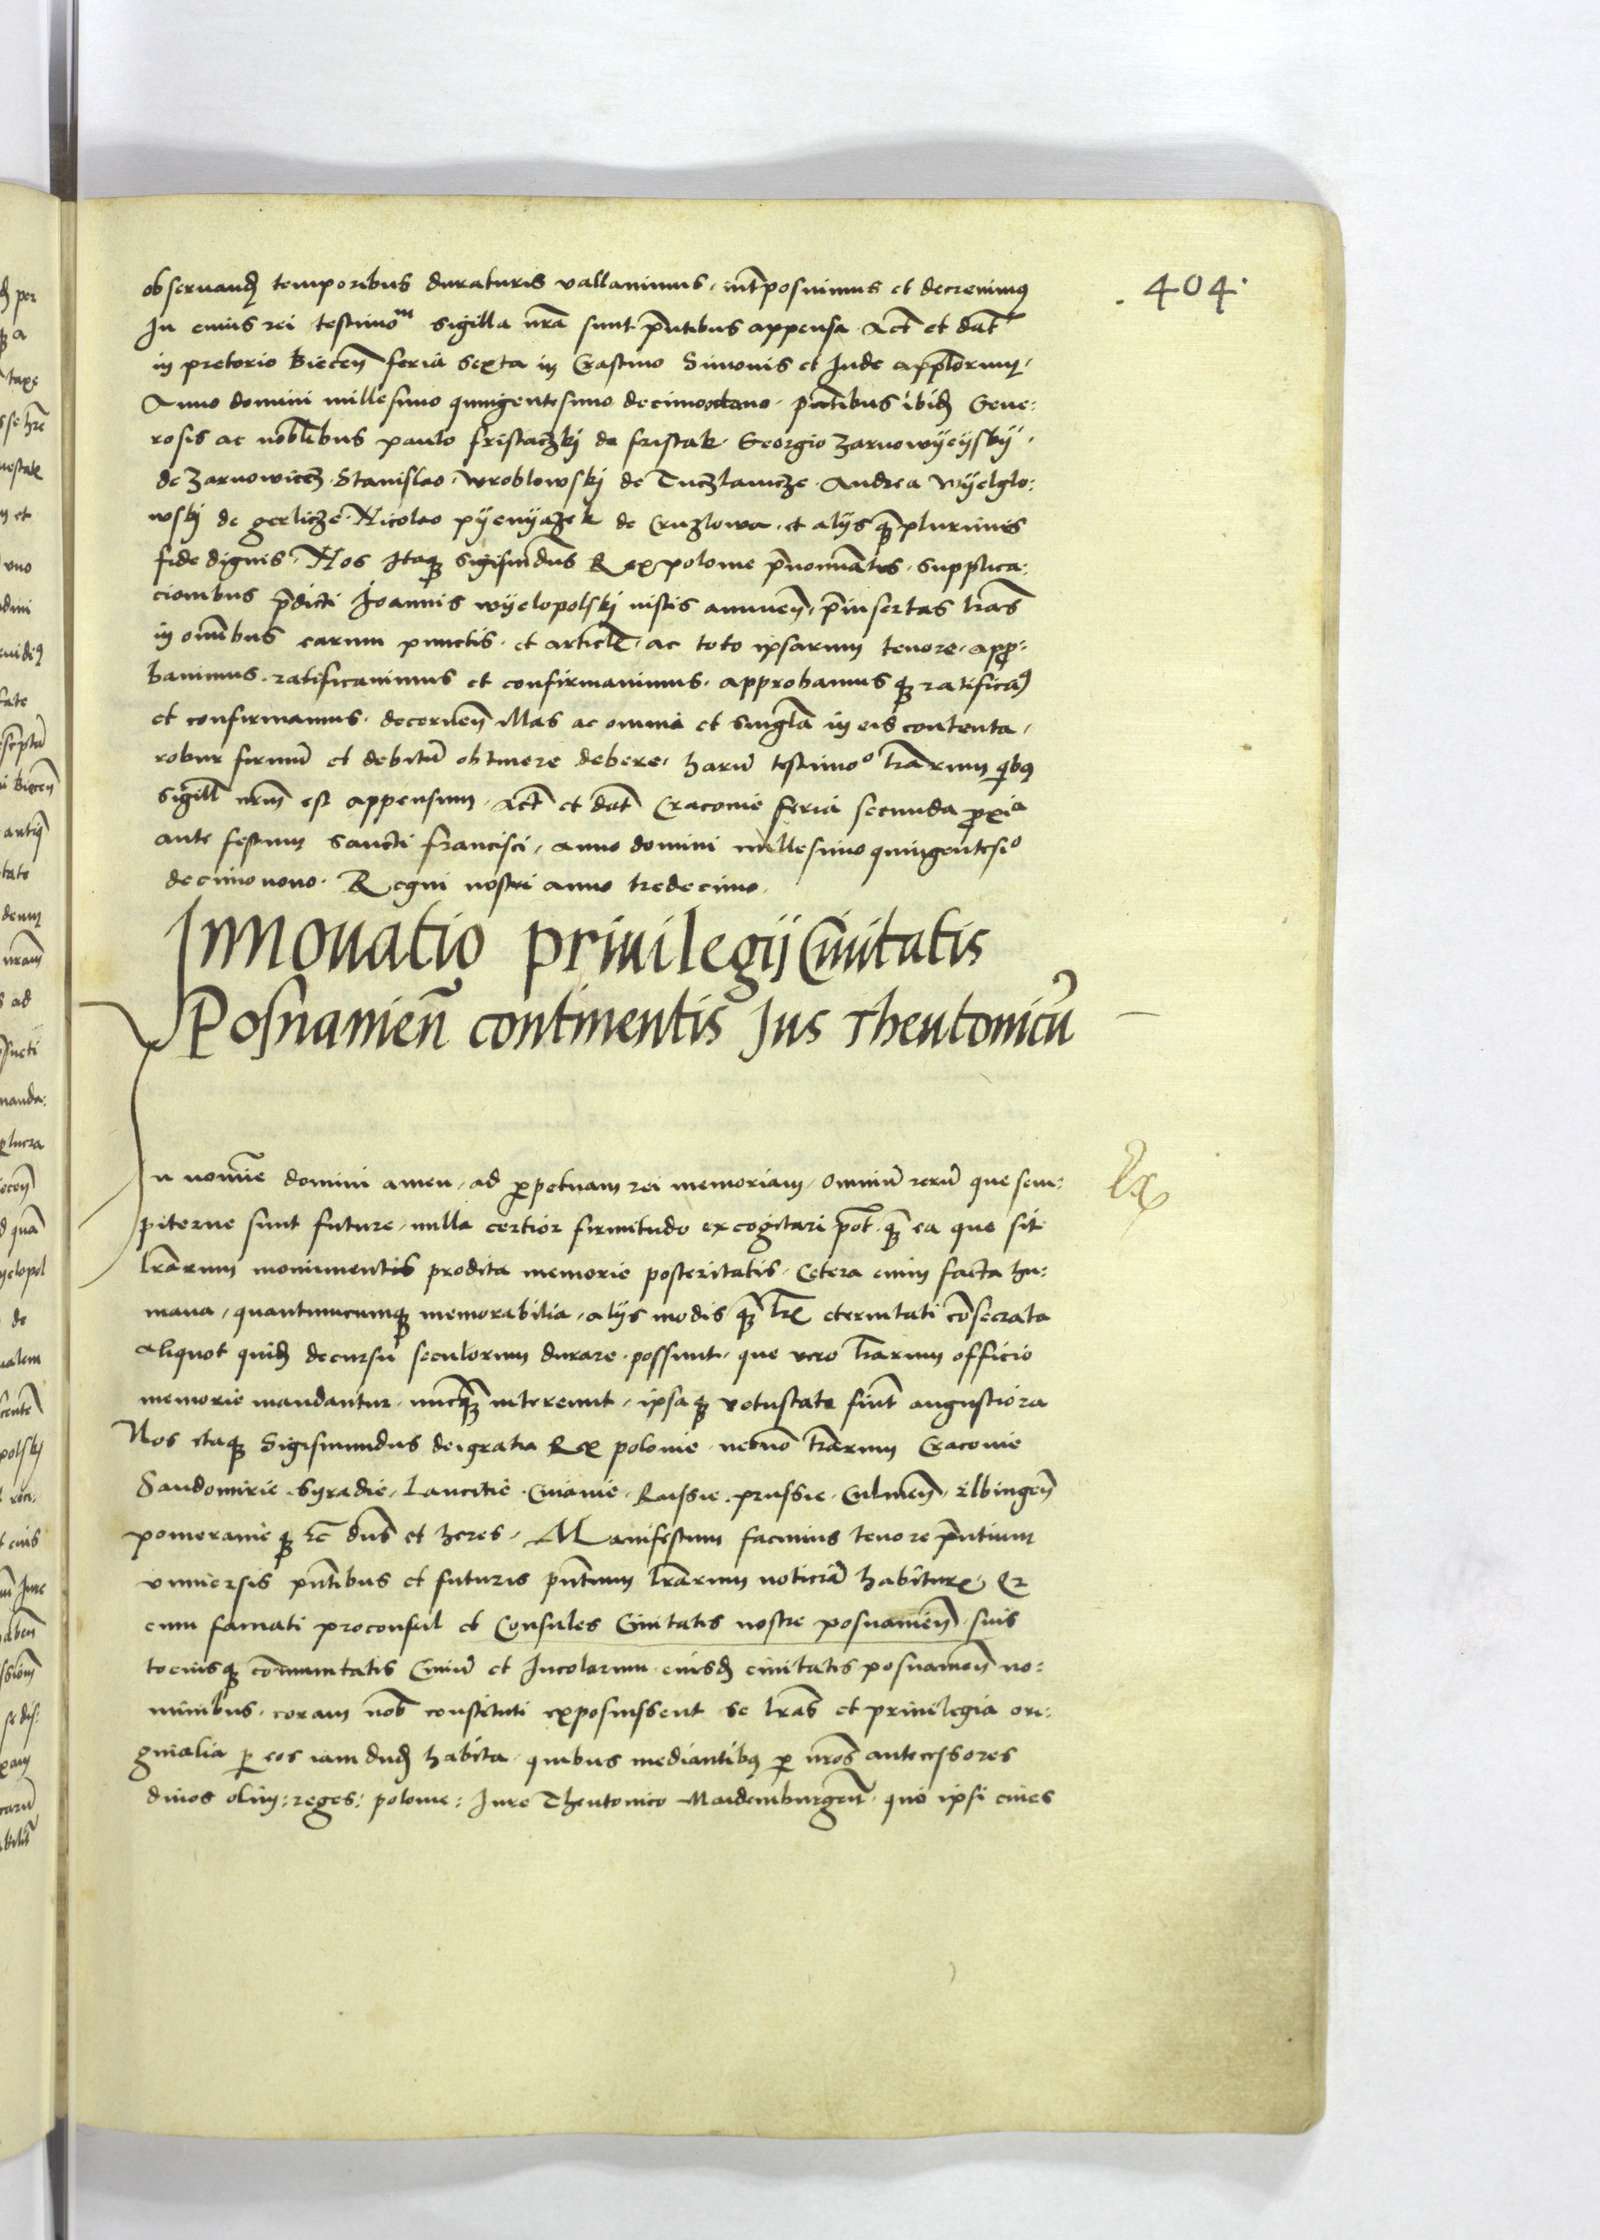 404.
obseruand temporibus duraturis vallauimus, int̄posuimus et decreuimus
In cuius rei testimom̄ sigilla nr̄a sunt p̄ntibus appensa. Act et dat̄
in pretorio biecen̄ feria sexta in Crastino Simonis et Jude app̄lorum,
Anno domini millesimo quingentesimo decimooctauo. p̄ntibus ibid̄ Gene:
rosis ac nob̄libus paulo fristaczkj de fristak. Georgio zarnowyeyskÿ,
de zarnowiecz. Stanislao. wroblowskj de Tuczlamcze. Andrea wyelglo:
wskj de gerlicze. Nicolao pÿenÿazek de Cruzlowa. et alijs q̄ plurimis
fide dignis. Nos Itaq̄ sigism̄dus Rex polonie p̄nominatus. supplica:
cionibus p̄dicti Joannis wÿelopolskj iustis annuen̄. p̄insertas lr̄as
in om̄ibus earum punctis. et articl̄. ac toto ipsarum tenore. appro:
bauimus. ratificauimus et confirmauimus. approbamusq̄ ratificam̄
et confirmamus. decernen̄ illas ac omnia et singl̄a in eis contenta,
robur firmū et debitū obtinere debere. harū testimoº lr̄arum quibus
sigill̄ nr̄m est appensum. Act̄ et dat̄ Cracouie feria secunda proxia
ante festum sancti francisci, anno domini millesimo quingentesiº
decimonono. Regni nostri anno tredecimo.
Innouatio priuilegij Ciuitatis
Posnanien̄ continentis Jus Theutonicū
In nomīe domini amen, ad perpetuam rei memoriam, Omniū rerū que sem:
piterne sunt future, nulla certior firmitudo excogitari pot̄. q̄ ea que sit
lr̄arum monumentis prodita memorie posteritatis. Cetera enim facta hu:
mana, quantumcumq̄ memorabilia, alijs modis q̄ lr̄is eternitati cōsecrata
aliquot quid̄ decursu seculorum durare possunt. que vero lr̄arum officio
memorie mandantur. nucq̄ intereunt, ipsaq̄ vetustate fiūt augustiora
Nos itaq̄ Sigismundus dei gratia Rex polonie. necnō tr̄arum Cracouie
Sandomirie. Syradie, Lancitie. Cuiauie. Russie. prussie. Culmen̄. elbingen̄
pomeranieq̄ rc̄ dn̄s et heres. Manifestum facimus tenore p̄ntium
vniuersis pn̄tibus et futuris pn̄tium lr̄arum noticiā habituris, Qr
cum famati proconsul et Consules Ciuitatis nostre posnanien̄. suis
tociusq̄ cōmunitatis Ciuiū et Incolarum eiusd̄ ciuitatis posnanien̄ no:
minibus. coram nob̄ constituti exposuissent se lr̄as et priuilegia ori:
ginalia p eos iamdud̄ habita. quibus mediantibus p nr̄os antecessores
diuos olim: reges: polonie: Iure Theutonico Maidemburgen̄. quo ipsi ciues